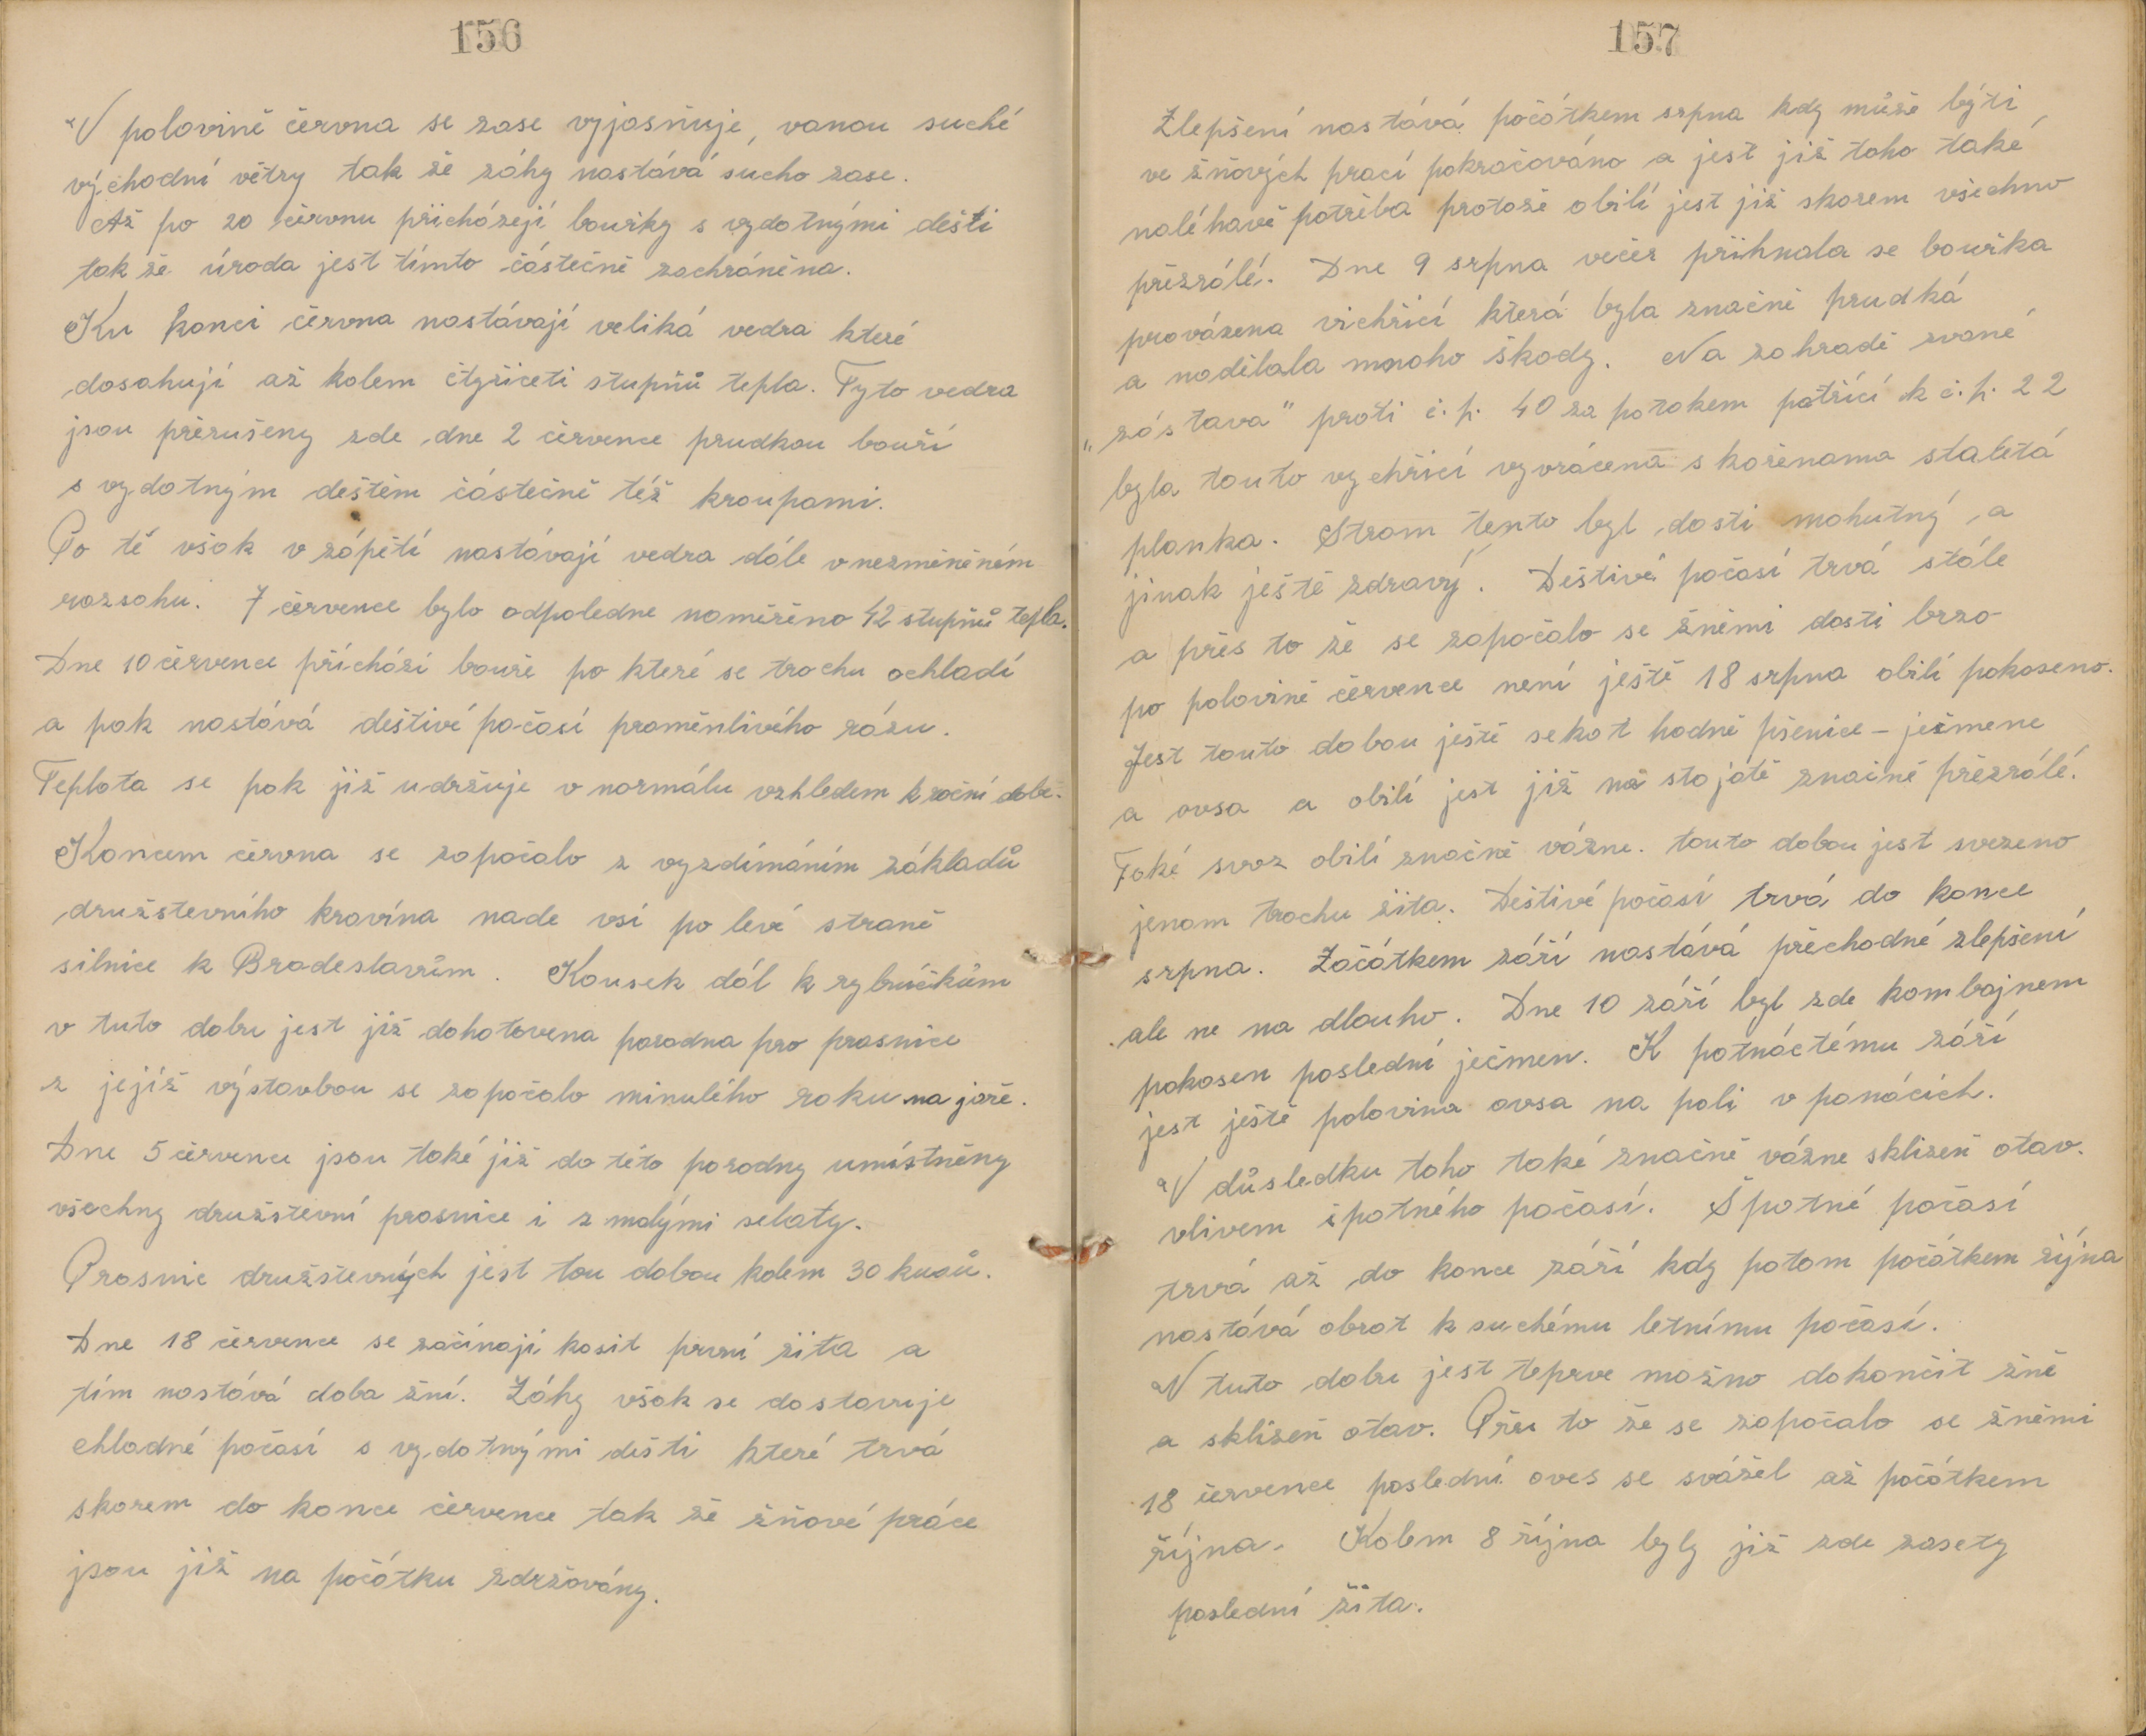 156
V polovině června se zase vyjasňuje, vanou suché
východní větry tak že záhy nastává sucho zase.
Až po 20 červnu přicházejí bouřky s vydatnými dešti
tak že úroda jest tímto částečně zachráněna.
Ku konci června nastávají veliká vedra které
dosahují až kolem čtyřiceti stupňů tepla. Tyto vedra
jsou přerušeny zde dne 2 července prudkou bouří
s vydatným deštěm částečně též kroupami.
Po té však v zápětí nastávají vedra dále v nezměněném
rozsahu. 7 července bylo odpoledne naměřeno 42 stupňů tepla.
Dne 10 července přichází bouře po které se trochu ochladí
a pak nastává deštivé počasí proměnlivého rázu.
Teplota se pak již udržuje v normálu vzhledem k roční době.
Koncem června se započalo z vyzdímáním základů
družstevního kravína nade vsí po levé straně
silnice k Bradeslavům. Kousek dál k rybníčkům
v tuto dobu jest již dohotovena porodna pro prasnice
z jejíž výstavbou se započalo minulého roku na jaře.
Dne 5 července jsou také již do této porodny umístněny
všechny družstevní prasnice i z malými selaty.
Prasnic družstevných jest tou dobou kolem 30 kusů.
Dne 18 července se začínají kosit první žita a
tím nastává doba žní. Záhy však se dostavuje
chladné počasí s vydatnými dešti které trvá
skorem do konce července tak že žňové práce
jsou již na počátku zdržovány.
157
Zlepšení nastává počátkem srpna kdy může býti
ve žňových prací pokračováno a jest již toho také
naléhavě potřeba protože obilí jest již skorem všechno
přezrálé. Dne 9 srpna večer přihnala se bouřka
provázena vichřicí která byla značně prudká
a nadělala mnoho škody. Na zahradě zvané
„zástava" proti č.p. 40 za potokem patřící k č.p. 22
byla touto vychřicí vyvrácena s kořenama staletá
planka. Strom tento byl dosti mohutný a
jinak ještě zdravý. Deštivé počasí trvá stále
a přes to že se započalo se žněmi dosti brzo
po polovině července není ještě 18 srpna obilí pokoseno.
Jest touto dobou ještě sekat hodně pšenice - ječmene
a ovsa a obilí jest již na stojatě značně přezrálé.
Také svoz obilí značně vázne. touto dobou jest svezeno
jenom trochu žita. Deštivé počasí trvá do konce
srpna. Začátkem září nastává přechodné zlepšení
ale ne na dlouho. Dne 10 září byl zde kombajnem
pokosen poslední ječmen. K patnáctému září
jest ještě polovina ovsa na poli v panácích.
V důsledku toho také značně vázne sklizeň otav.
vlivem špatného počasí. Špatné počasí
trvá až do konce září kdy potom počátkem října
nastává obrat k suchému letnímu počasí.
V tuto dobu jest teprve možno dokončit žně
a sklizeň otav. Přes to že se započalo se žněmi
18 července poslední oves se svážel až počátkem
října. Kolem 8 října byly již zde zasety
poslední žita.